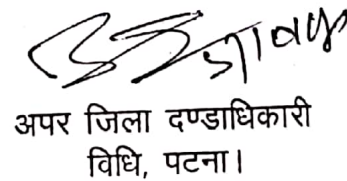 अपर जिला दण्डाधिकारी
विधि, पटना।